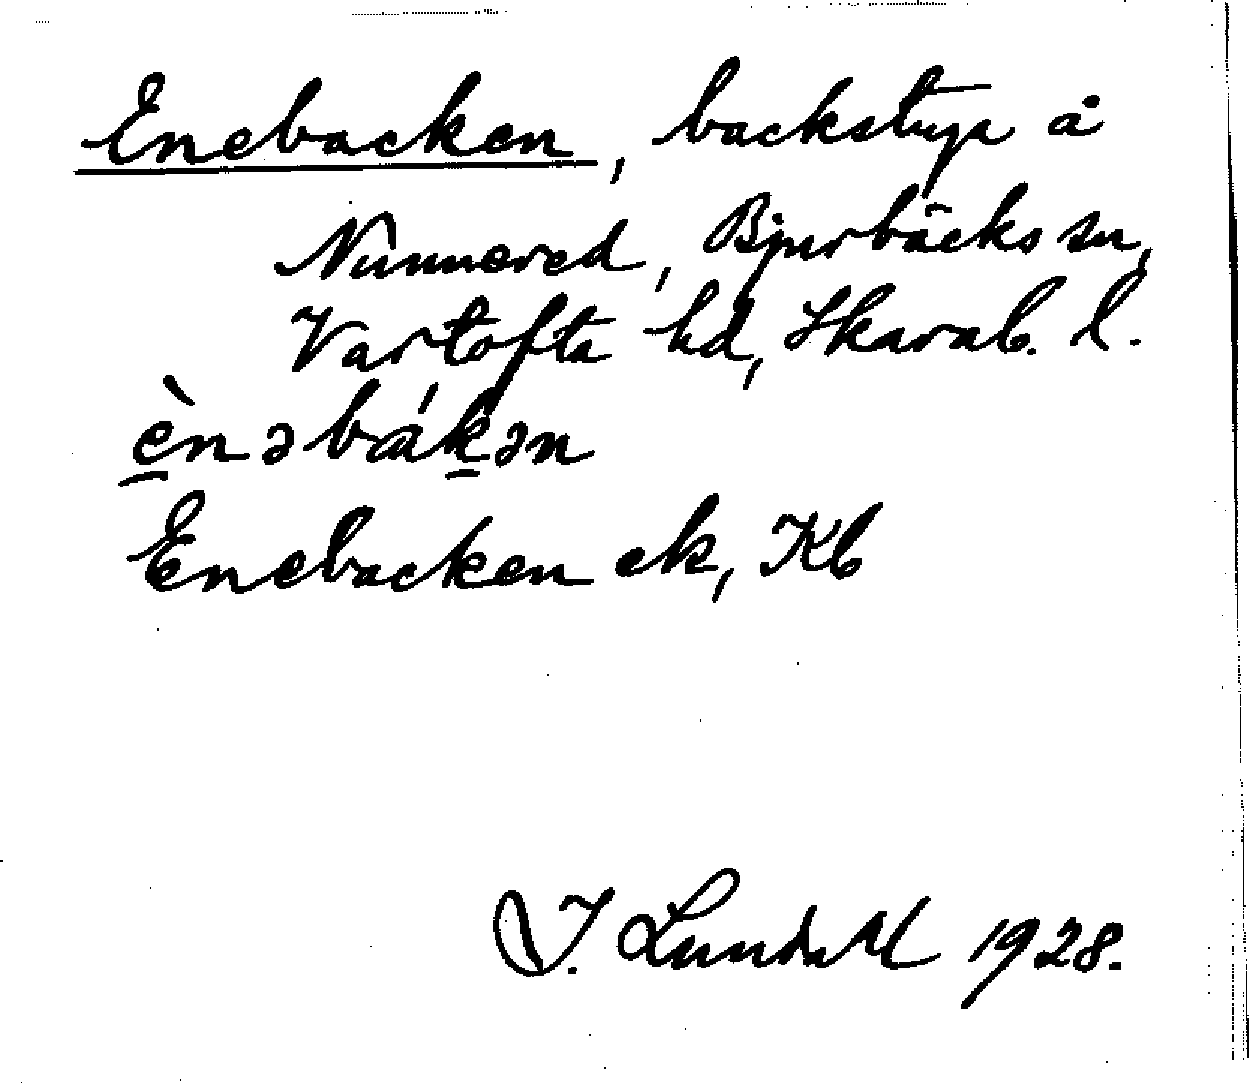 Enebacken, backstuga å
Nunnered, Bjurbäcks sn,
Vartofta hd, Skarab. l.
è̲nəbák̲ən
Enebacken ek, Kb
I. Lundahl 1928.